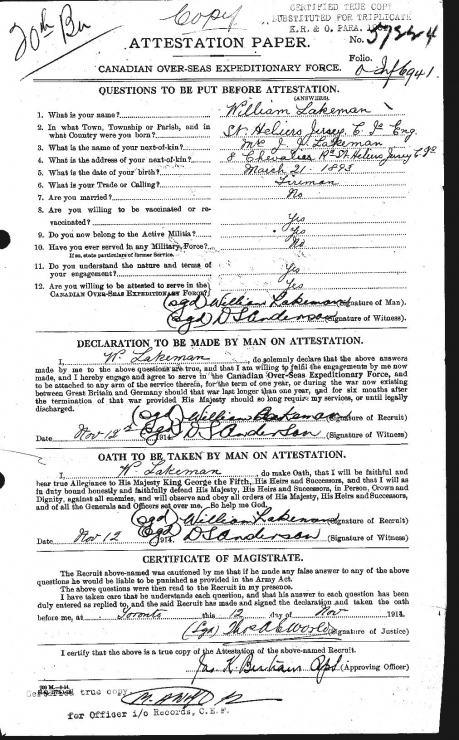 Copy
CERTIFIED TRUE COPY
SUBSTITUTED FOR TRIPLICATE
K.R. & O. PARA.
20th Bn
No.
ATTESTATION PAPER.
Folio.
CANADIAN OVER-SEAS EXPEDITIONARY FORCE.
QUESTIONS TO BE PUT BEFORE ATTESTATION.
(ANSWERS)
1. What is your name? William Lakeman
2. In what Town, Township or Parish, and in
what Country were you born? St. Heliers Jersey C. Is Eng.
3. What is the name of your next-of-kin? Mrs J. Lakeman
4. What is the address of your next-of-kin? 8 Chevalier Rd St. Heliers Jersey
5. What is the date of your birth? March 21. 1893
6. What is your Trade or Calling? Fireman
7. Are you married? No
8. Are you willing to be vaccinated or re-
vaccinated? Yes
9. Do you now belong to the Active Militia? Yes
10. Have you ever served in any Military Force? No
If so, state particulars of former Service.
11. Do you understand the nature and terms of
your engagement? Yes
12. Are you willing to be attested to serve in the
CANADIAN OVER-SEAS EXPEDITIONARY FORCE? Yes
(sgd) William Lakeman (Signature of Man).
(sgd) D S Anderson (Signature of Witness).
DECLARATION TO BE MADE BY MAN ON ATTESTATION.
I, W. Lakeman, do solemnly declare that the above answers
made by me to the above questions are true, and that I am willing to fulfil the engagements by me now
made, and I hereby engage and agree to serve in the Canadian Over-Seas Expeditionary Force, and
to be attached to any arm of the service therein, for the term of one year, or during the war now existing
between Great Britain and Germany should that war last longer than one year, and for six months after
the termination of that war provided His Majesty should so long require my services, or until legally
discharged.
(sgd) William Lakeman (Signature of Recruit)
Date Nov 12 1914. (sgd) D S Anderson (Signature of Witness)
OATH TO BE TAKEN BY MAN ON ATTESTATION.
I, W. Lakeman, do make Oath, that I will be faithful and
bear true Allegiance to His Majesty King George the Fifth, His Heirs and Successors, and that I will as
in duty bound honestly and faithfully defend His Majesty, His Heirs and Successors, in Person, Crown and
Dignity, against all enemies, and will observe and obey all orders of His Majesty, His Heirs and Successors,
and of all the Generals and Officers set over me. So help me God.
(sgd) William Lakeman (Signature of Recruit)
Date Nov 12 1914. (sgd) D S Anderson (Signature of Witness)
CERTIFICATE OF MAGISTRATE.
The Recruit above-named was cautioned by me that if he made any false answer to any of the above
questions he would be liable to be punished as provided in the Army Act.
The above questions were then read to the Recruit in my presence.
I have taken care that he understands each question, and that his answer to each question has been
duly entered as replied to, and the said Recruit has made and signed the declaration and taken the oath
before me, at Toronto this 12 day of Nov 1914.
(Sgd) (Signature of Justice)
I certify that the above is a true copy of the Attestation of the above-named Recruit.
Jas K. Bertram (Approving Officer)
Certified true copy
for Officer i/c Records, C.E.F.